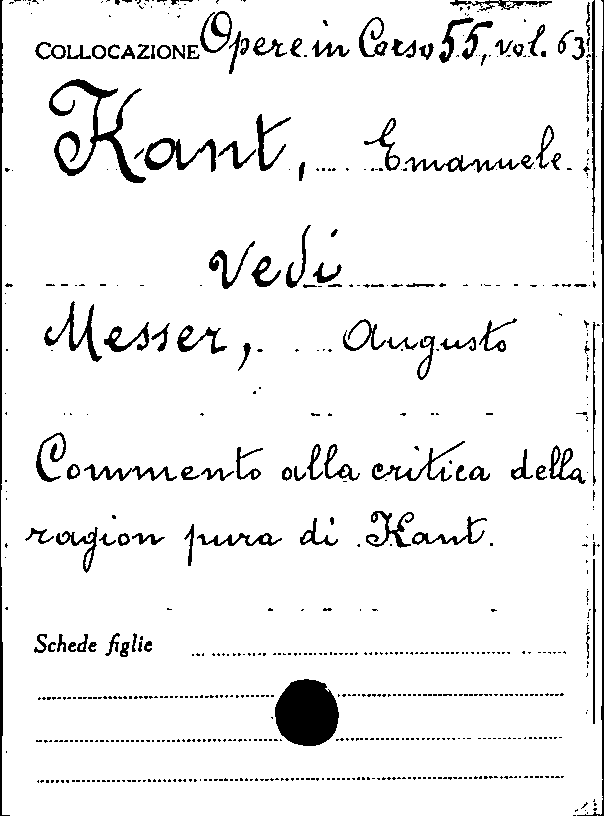 COLLOCAZIONE Opere in Corso 55, vol. 63
Kant, Emanuele
Vedi
Messer, Augusto
Commento alla critica della
ragion pura di Kant.
Schede figlie